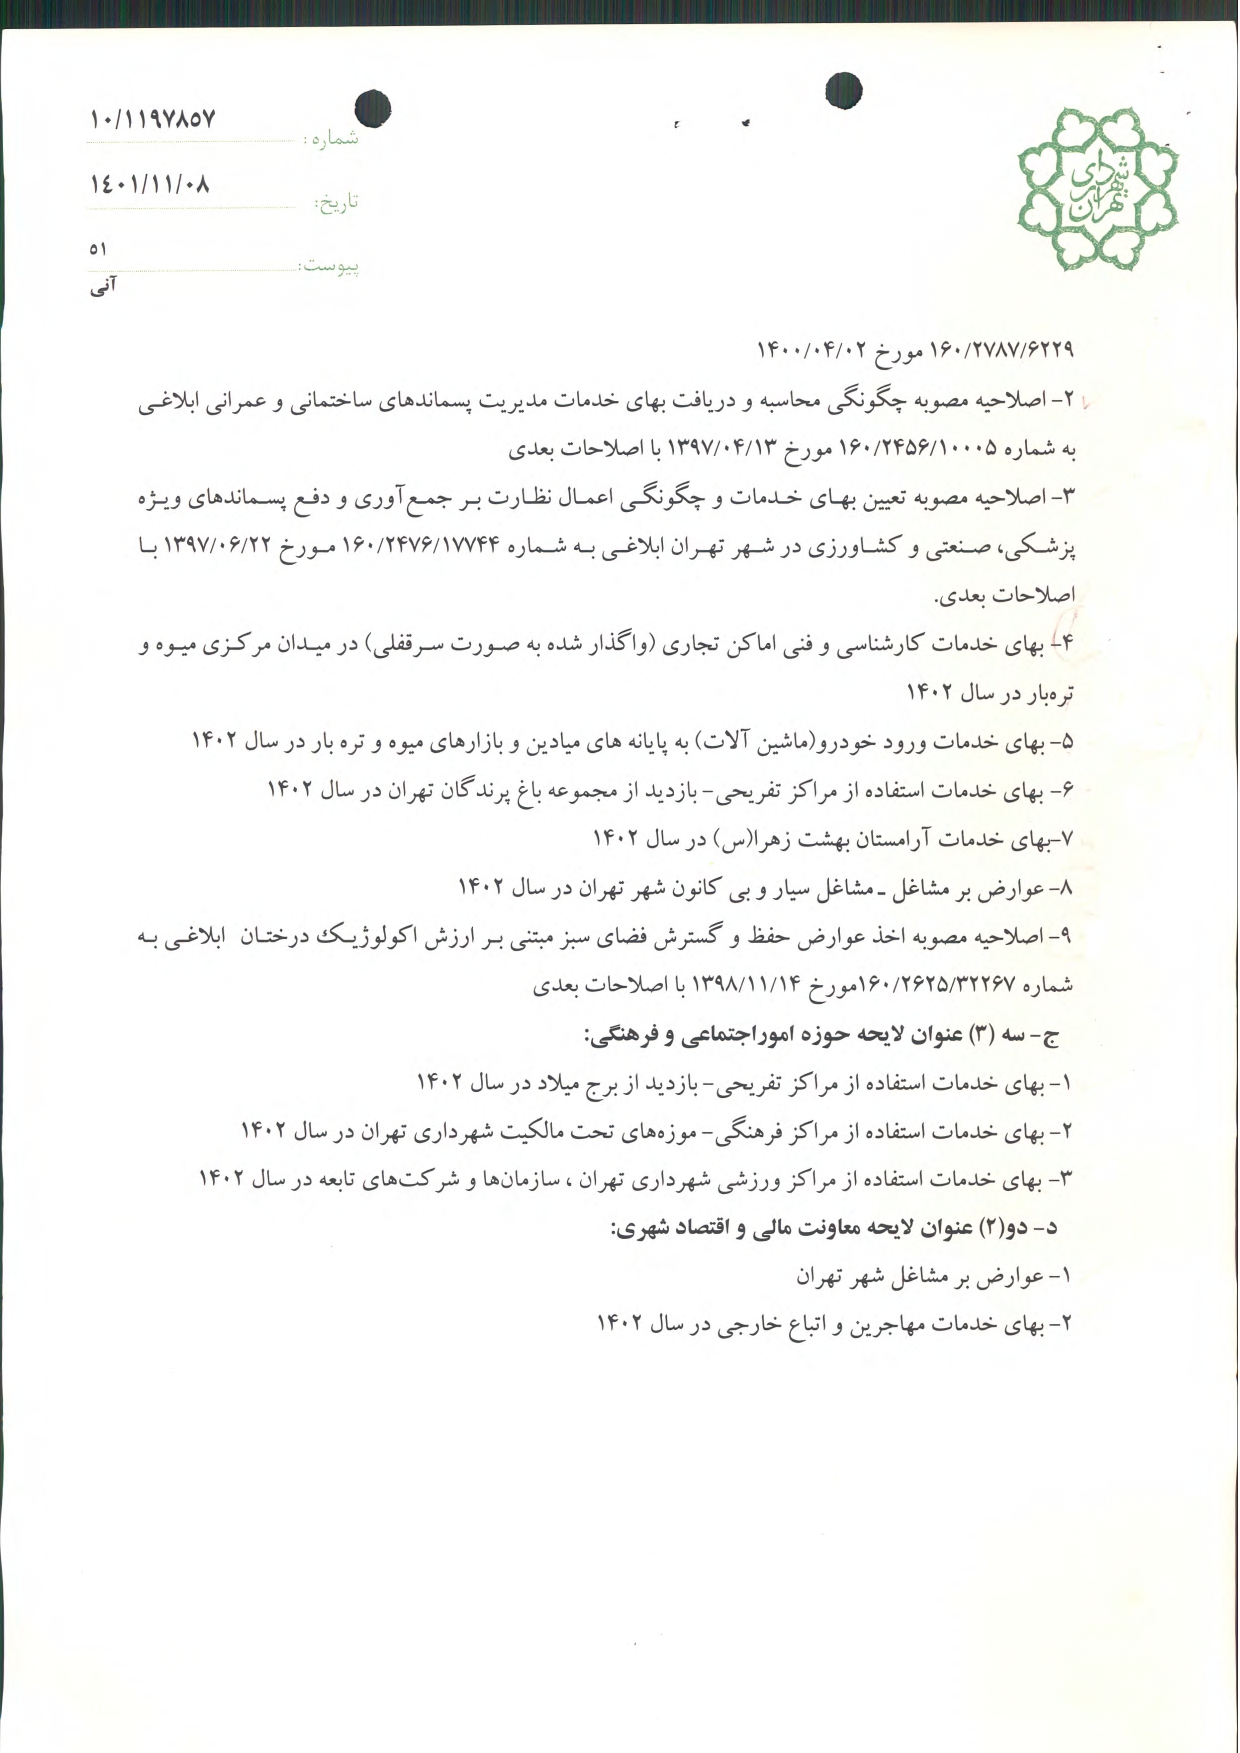 شماره: ۱۰/۱۱۹۷۸۵۷
تاریخ: ۱٤۰۱/۱۱/۰۸
پیوست: ۵۱
آنی
شهرداری تهران
۱۶۰/۲۷۸۷/۶۲۲۹ مورخ ۱۴۰۰/۰۴/۰۲
۲- اصلاحیه مصوبه چگونگی محاسبه و دریافت بهای خدمات مدیریت پسماندهای ساختمانی و عمرانی ابلاغی
به شماره ۱۶۰/۲۴۵۶/۱۰۰۰۵ مورخ ۱۳۹۷/۰۴/۱۳ با اصلاحات بعدی
۳- اصلاحیه مصوبه تعیین بهای خدمات و چگونگی اعمال نظارت بر جمع‌آوری و دفع پسماندهای ویژه
پزشکی، صنعتی و کشاورزی در شهر تهران ابلاغی به شماره ۱۶۰/۲۴۷۶/۱۷۷۴۴ مورخ ۱۳۹۷/۰۶/۲۲ با
اصلاحات بعدی.
۴- بهای خدمات کارشناسی و فنی اماکن تجاری (واگذار شده به صورت سرقفلی) در میدان مرکزی میوه و
تره‌بار در سال ۱۴۰۲
۵- بهای خدمات ورود خودرو(ماشین آلات) به پایانه های میادین و بازارهای میوه و تره بار در سال ۱۴۰۲
۶- بهای خدمات استفاده از مراکز تفریحی- بازدید از مجموعه باغ پرندگان تهران در سال ۱۴۰۲
۷-بهای خدمات آرامستان بهشت زهرا(س) در سال ۱۴۰۲
۸- عوارض بر مشاغل ـ مشاغل سیار و بی کانون شهر تهران در سال ۱۴۰۲
۹- اصلاحیه مصوبه اخذ عوارض حفظ و گسترش فضای سبز مبتنی بر ارزش اکولوژیک درختان ابلاغی به
شماره ۱۶۰/۲۶۲۵/۳۲۲۶۷مورخ ۱۳۹۸/۱۱/۱۴ با اصلاحات بعدی
ج- سه (۳) عنوان لایحه حوزه اموراجتماعی و فرهنگی:
۱- بهای خدمات استفاده از مراکز تفریحی- بازدید از برج میلاد در سال ۱۴۰۲
۲- بهای خدمات استفاده از مراکز فرهنگی- موزه‌های تحت مالکیت شهرداری تهران در سال ۱۴۰۲
۳- بهای خدمات استفاده از مراکز ورزشی شهرداری تهران ، سازمان‌ها و شرکت‌های تابعه در سال ۱۴۰۲
د- دو(۲) عنوان لایحه معاونت مالی و اقتصاد شهری:
۱- عوارض بر مشاغل شهر تهران
۲- بهای خدمات مهاجرین و اتباع خارجی در سال ۱۴۰۲